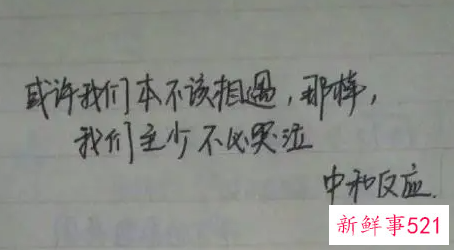 或许我们本不该相遇，那样，
我们至少不必哭泣
中和反应.
新鲜事521